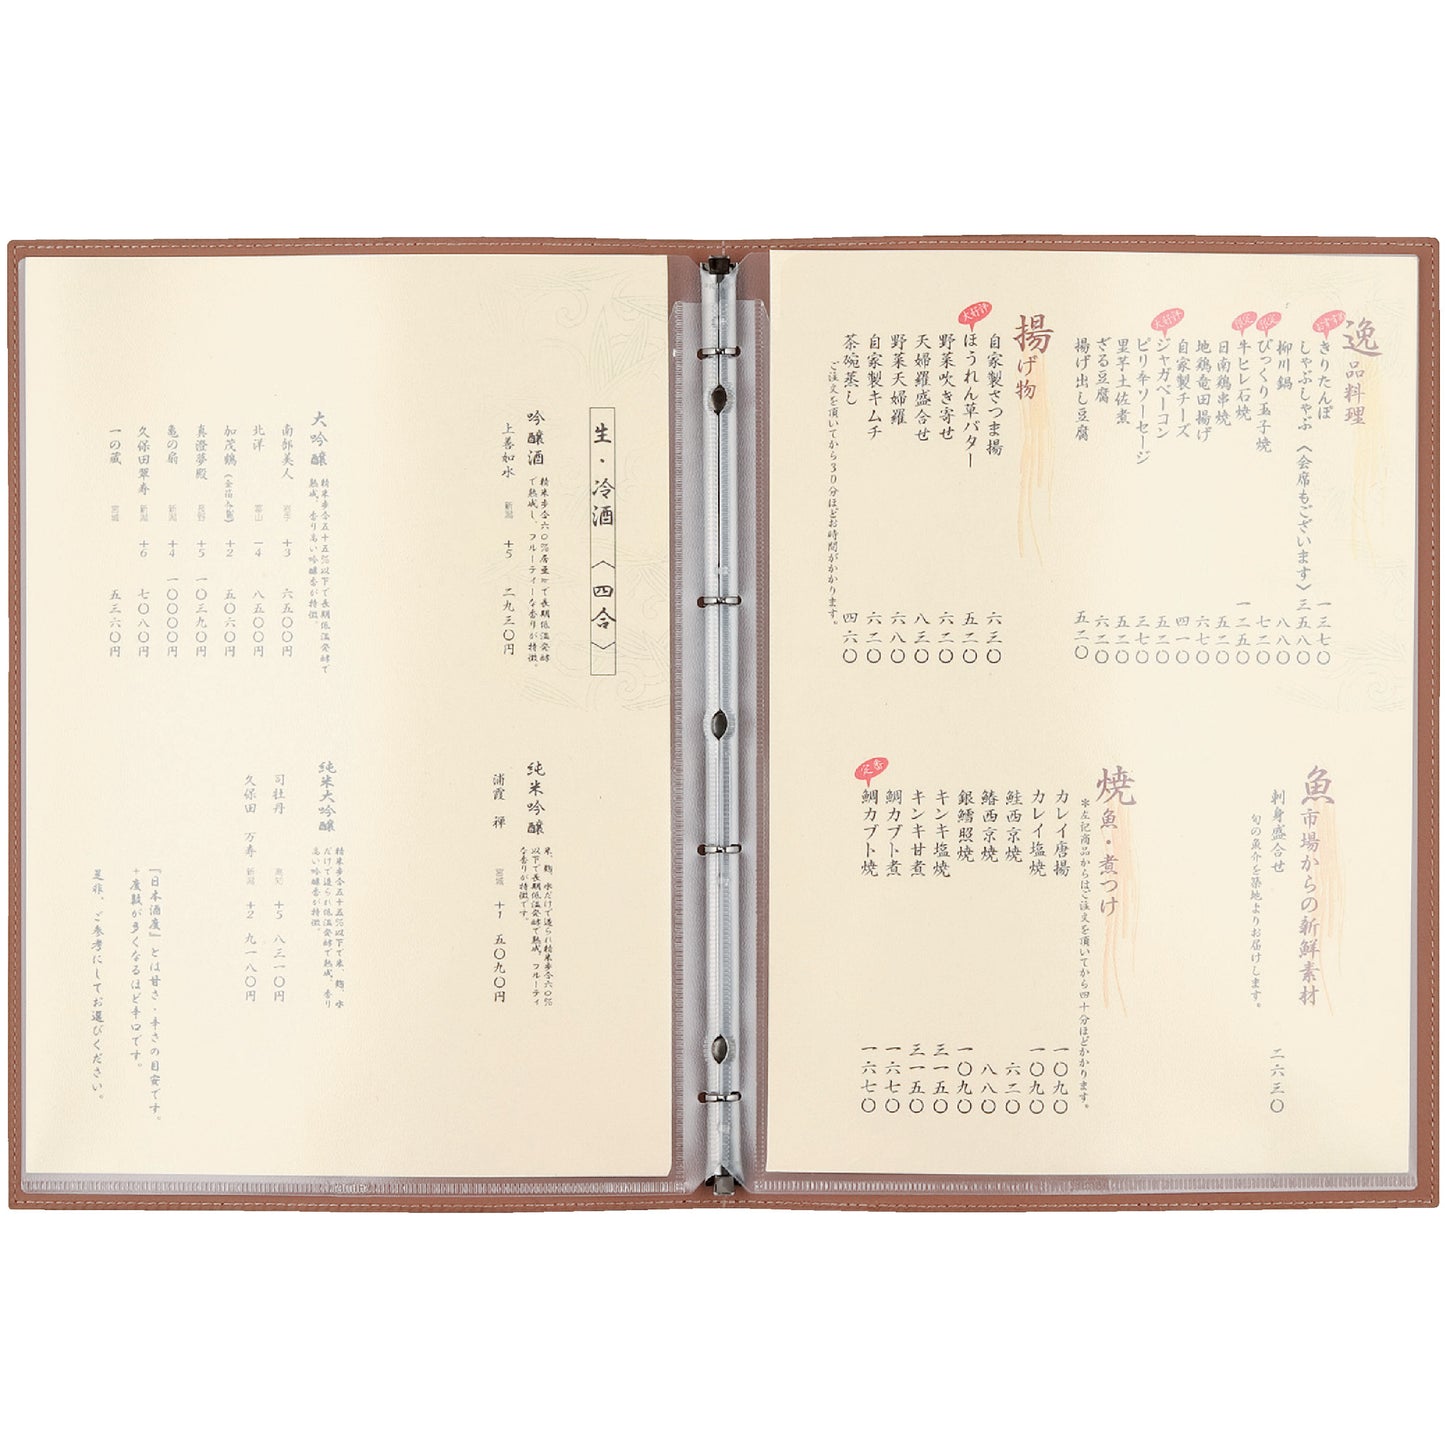 逸品料理
おすすめ
きりたんぽ 一三七〇
しゃぶしゃぶ〈会席もございます〉 三五八〇
柳川鍋 八八〇
限定
びっくり玉子焼 七二〇
限定
牛ヒレ石焼 一二五〇
日南鶏串焼 五二〇
地鶏竜田揚げ 六七〇
自家製チーズ 四一〇
大好評
ジャガベーコン 五二〇
ピリ辛ソーセージ 三七〇
里芋土佐煮 五二〇
ざる豆腐 六二〇
揚げ出し豆腐 五二〇
揚げ物
自家製さつま揚 六三〇
大好評
ほうれん草バター 五二〇
野菜吹き寄せ 六二〇
天婦羅盛合せ 八三〇
野菜天婦羅 六八〇
自家製キムチ 六二〇
茶碗蒸し 四六〇
ご注文を頂いてから３０分ほどお時間がかかります。
魚市場からの新鮮素材
刺身盛合せ 二六三〇
旬の魚介を築地よりお届けします。
焼魚・煮つけ
※左記商品からはご注文を頂いてから四十分ほどかかります。
カレイ唐揚 一〇九〇
カレイ塩焼 一〇九〇
鮭西京焼 六二〇
鰆西京焼 八八〇
銀鱈照焼 一〇九〇
キンキ塩焼 三一五〇
キンキ甘煮 三一五〇
鯛カブト煮 一六七〇
定番
鯛カブト焼 一六七〇
生・冷酒〈四合〉
吟醸酒
精米歩合六〇％居亜ｋで長期低温発酵
で熟成し、フルーティーな香りが特徴。
上善如水 新潟 +5 二九三〇円
純米吟醸
米、麹、水だけで造られ精米歩合六〇％
以下で長期低温発酵で熟成。フルーティ
な香りが特徴です。
浦霞 禅 宮城 +1 五〇九〇円
大吟醸
精米歩合五十五％以下で長期低温発酵で
熟成。香り高い吟醸香が特徴。
南部美人 岩手 +3 六五〇〇円
北洋 富山 -4 八五〇〇円
加茂鶴（金箔入り） +2 五〇六〇円
真澄夢殿 長野 +5 一〇三九〇円
亀の翁 新潟 +4 一〇〇〇〇円
久保田翠寿 新潟 +6 七〇八〇円
一の蔵 宮城 五三六〇円
純米大吟醸
精米歩合五十五％以下で米、麹、水
だけで造られ低温発酵で熟成。香り
高い吟醸香が特徴。
司牡丹 高知 +5 八三一〇円
久保田 万寿 新潟 +2 九一八〇円
『日本酒度』とは甘さ・辛さの目安です。
+度数が多くなるほど辛口です。
是非、ご参考にしてお選びください。